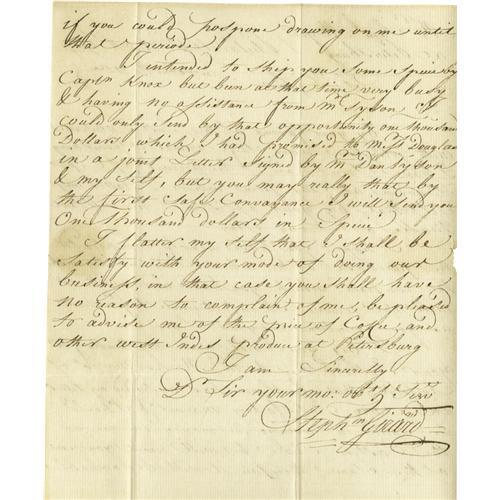 if you could postpone drawing on me until
that periode
I intended to ship you some Specie by
Captn Knox but bun at that time very busy
& having no assistance from Mr Tyson
could only send by that opportunity one thousand
Dollars which I had promised to Messrs Douglas
in a joint Letter signed by Mr Dan Tyson
& my self, but you may really that by
the first safe Conveyance I will send you
One thousand dollars in Specie
I flatter my self that I shall be
satisfy with your mode of doing our
business, in that case you shall have
no reason to complain of me, be pleased
to advise me of the price of Coffee, and
other west Indes produce at Petersburg
I am Sincerely
Dr Sir your mo: obt Serv
Stephn Girard